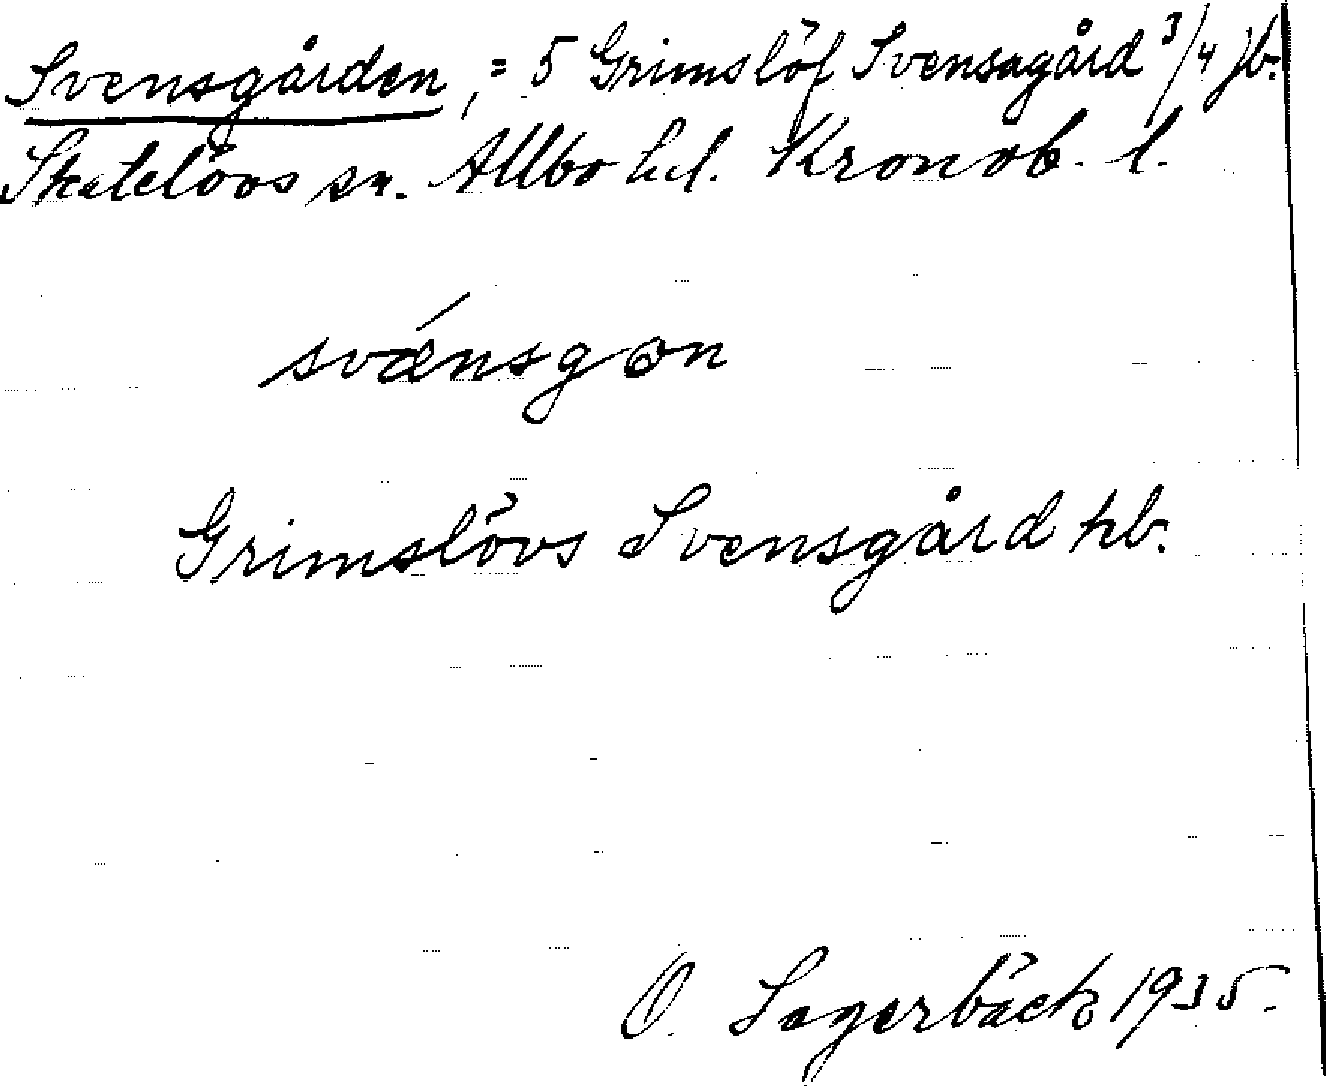 Svensgården, = 5 Grimslöf Svensagård 3/4 jb.
Skatelövs sn. Allbo hd. Kronob. l.
svä́nsgɷn
Grimslövs Svensgård pb.
O. Lagerbäck 1935.